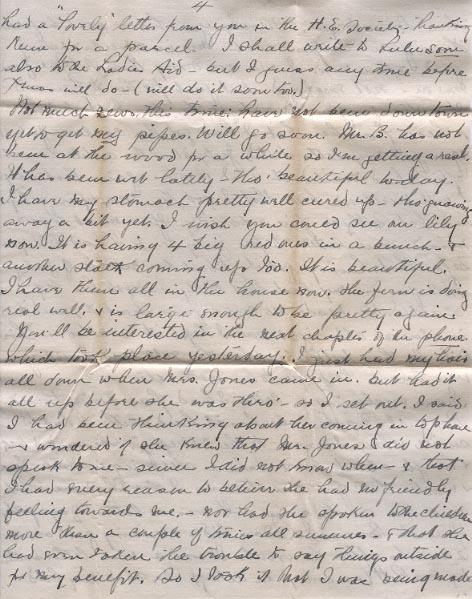 4
had a "lovely" letter from you in the H. E. Society thanking
them for a parcel. I shall write to Lulu soon
also to the Ladies Aid - but I guess any time before
Xmas will do - (will do it soon too.)
Not much news this time. have not been down town
yet to get my pipes. Will go soon. Mr. B. has not
been at the wood for a while so I'm getting a rest.
It has been wet lately - tho' beautiful today.
I have my stomach pretty well cured up - tho' gnawing
away a bit yet. I wish you could see our lily
now. It is having 4 big red ones in a bunch - &
another stalk coming up too. It is beautiful.
I have them all in the house now. The fern is doing
real well. & is large enough to be pretty again.
You'll be interested in the next chapter of the phone
which took place yesterday. I just had my hair
all down when Mrs. Jones came in. but had it
all up before she was thro' - so I set out. I said
I had been thinking about her coming in to phone
& wondered if she knew that Mr. Jones did not
speak to me - since I did not know when - & that
I had every reason to believe she had no friendly
feeling towards me. - nor had she spoken to the children
more than a couple of times all summer - & that she
had even taken the trouble to say things outside
for my benefit. So I took it that I was being made